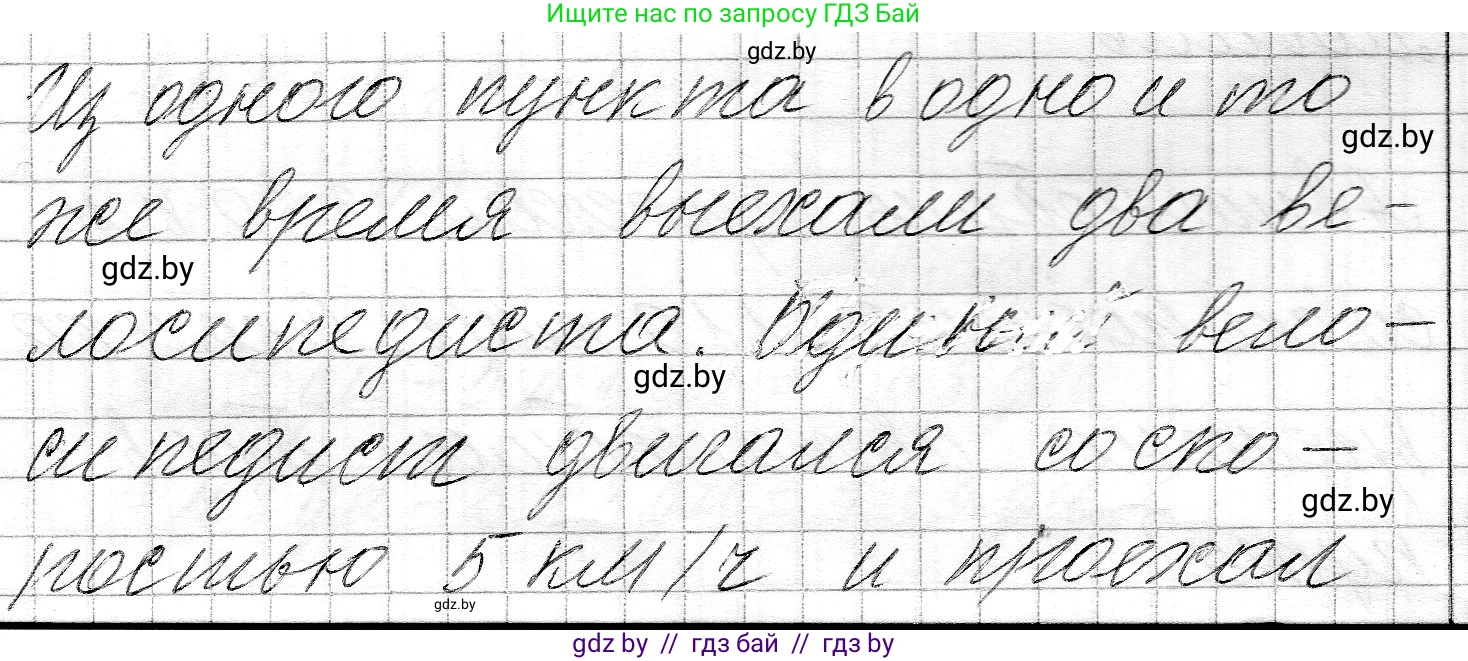 Ищите нас по запросу ГДЗ Бай
gdz.by
Из одного пункта в одно и то
gdz.by
же время выехали два ве-
gdz.by
лосипедиста. Один вело-
gdz.by
сипедист двигался со ско-
gdz.by
ростью 5 км/ч и проехал
gdz.by
gdz by // гдз бай // гдз by